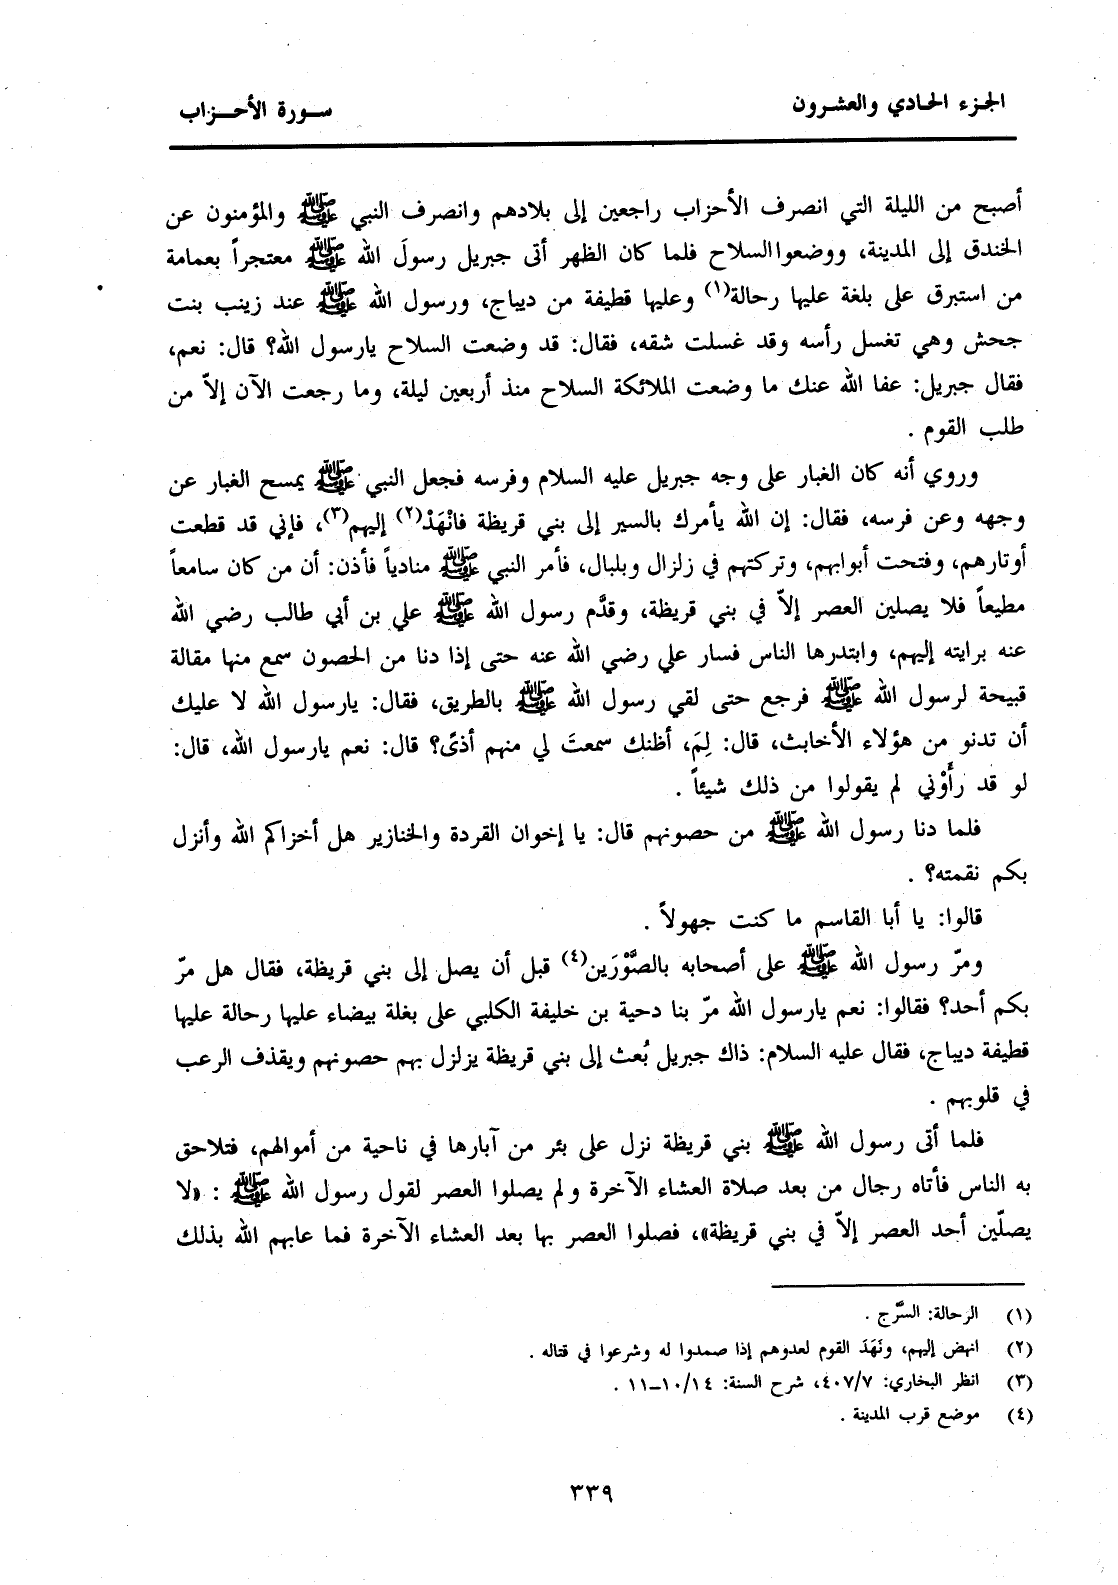 الجزء الحادي والعشرون
سورة الأحزاب
أصبح من الليلة التي انصرف الأحزاب راجعين إلى بلادهم وانصرف النبي ﷺ والمؤمنون عن
الخندق إلى المدينة، ووضعوا السلاح فلما كان الظهر أتى جبريل رسولَ الله ﷺ معتجراً بعمامة
من استبرق على بلغة عليها رحالة(١) وعليها قطيفة من ديباج، ورسول الله ﷺ عند زينب بنت
جحش وهي تغسل رأسه وقد غسلت شقه، فقال: قد وضعت السلاح يارسول الله؟ قال: نعم،
فقال جبريل: عفا الله عنك ما وضعت الملائكة السلاح منذ أربعين ليلة، وما رجعت الآن إلاّ من
طلب القوم .
وروي أنه كان الغبار على وجه جبريل عليه السلام وفرسه فجعل النبي ﷺ يمسح الغبار عن
وجهه وعن فرسه، فقال: إن الله يأمرك بالسير إلى بني قريظة فانْهَدْ(٢) إليهم(٣)، فإني قد قطعت
أوتارهم، وفتحت أبوابهم، وتركتهم في زلزال وبلبال، فأمر النبي ﷺ منادياً فأذن: أن من كان سامعاً
مطيعاً فلا يصلين العصر إلاّ في بني قريظة، وقدَّم رسول الله ﷺ علي بن أبي طالب رضي الله
عنه برايته إليهم، وابتدرها الناس فسار علي رضي الله عنه حتى إذا دنا من الحصون سمع منها مقالة
قبيحة لرسول الله ﷺ فرجع حتى لقي رسول الله ﷺ بالطريق، فقال: يارسول الله لا عليك
أن تدنو من هؤلاء الأخابث، قال: لِمَ، أظنك سمعتَ لي منهم أذىً؟ قال: نعم يارسول الله، قال:
لو قد رأَوْني لم يقولوا من ذلك شيئاً .
فلما دنا رسول الله ﷺ من حصونهم قال: يا إخوان القردة والخنازير هل أخزاكم الله وأنزل
بكم نقمته؟ .
قالوا: يا أبا القاسم ما كنت جهولاً .
ومرّ رسول الله ﷺ على أصحابه بالصَّوْرَين(٤) قبل أن يصل إلى بني قريظة، فقال هل مرّ
بكم أحد؟ فقالوا: نعم يارسول الله مرّ بنا دحية بن خليفة الكلبي على بغلة بيضاء عليها رحالة عليها
قطيفة ديباج، فقال عليه السلام: ذاك جبريل بُعث إلى بني قريظة يزلزل بهم حصونهم ويقذف الرعب
في قلوبهم .
فلما أتى رسول الله ﷺ بني قريظة نزل على بئر من آبارها في ناحية من أموالهم، فتلاحق
به الناس فأتاه رجال من بعد صلاة العشاء الآخرة ولم يصلوا العصر لقول رسول الله ﷺ : «لا
يصلّين أحد العصر إلاّ في بني قريظة»، فصلوا العصر بها بعد العشاء الآخرة فما عابهم الله بذلك
(١) الرحالة: السَّرج .
(٢) انهض إليهم، ونَهَدَ القوم لعدوهم إذا صمدوا له وشرعوا في قتاله .
(٣) انظر البخاري: ٤٠٧/٧، شرح السنة: ١٠/١٤–١١ .
(٤) موضع قرب المدينة .
٣٣٩